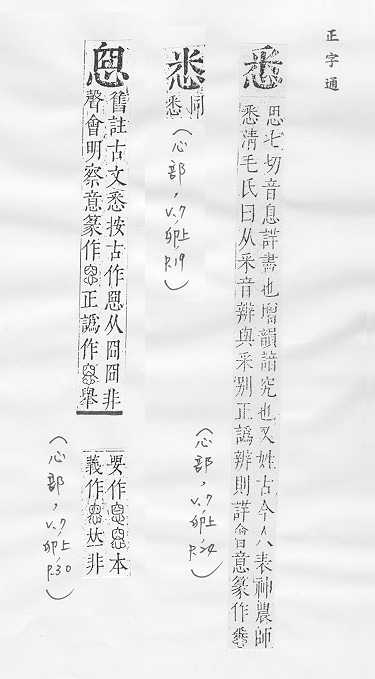 正字通
悉
思七切音息詳盡也增韻諳究也又姓古今人表神農師
悉清毛氏曰从釆音辨與采別正譌辨則詳會意篆作
(心部, v.7 卯上 p.24)
同
悉
(心部, v.7 卯上 p.19)
舊註古文悉按古作从囧囧非
聲會明察意篆作正譌作舉
要作本
義作丛非
(心部, v.7 卯上 p.30)